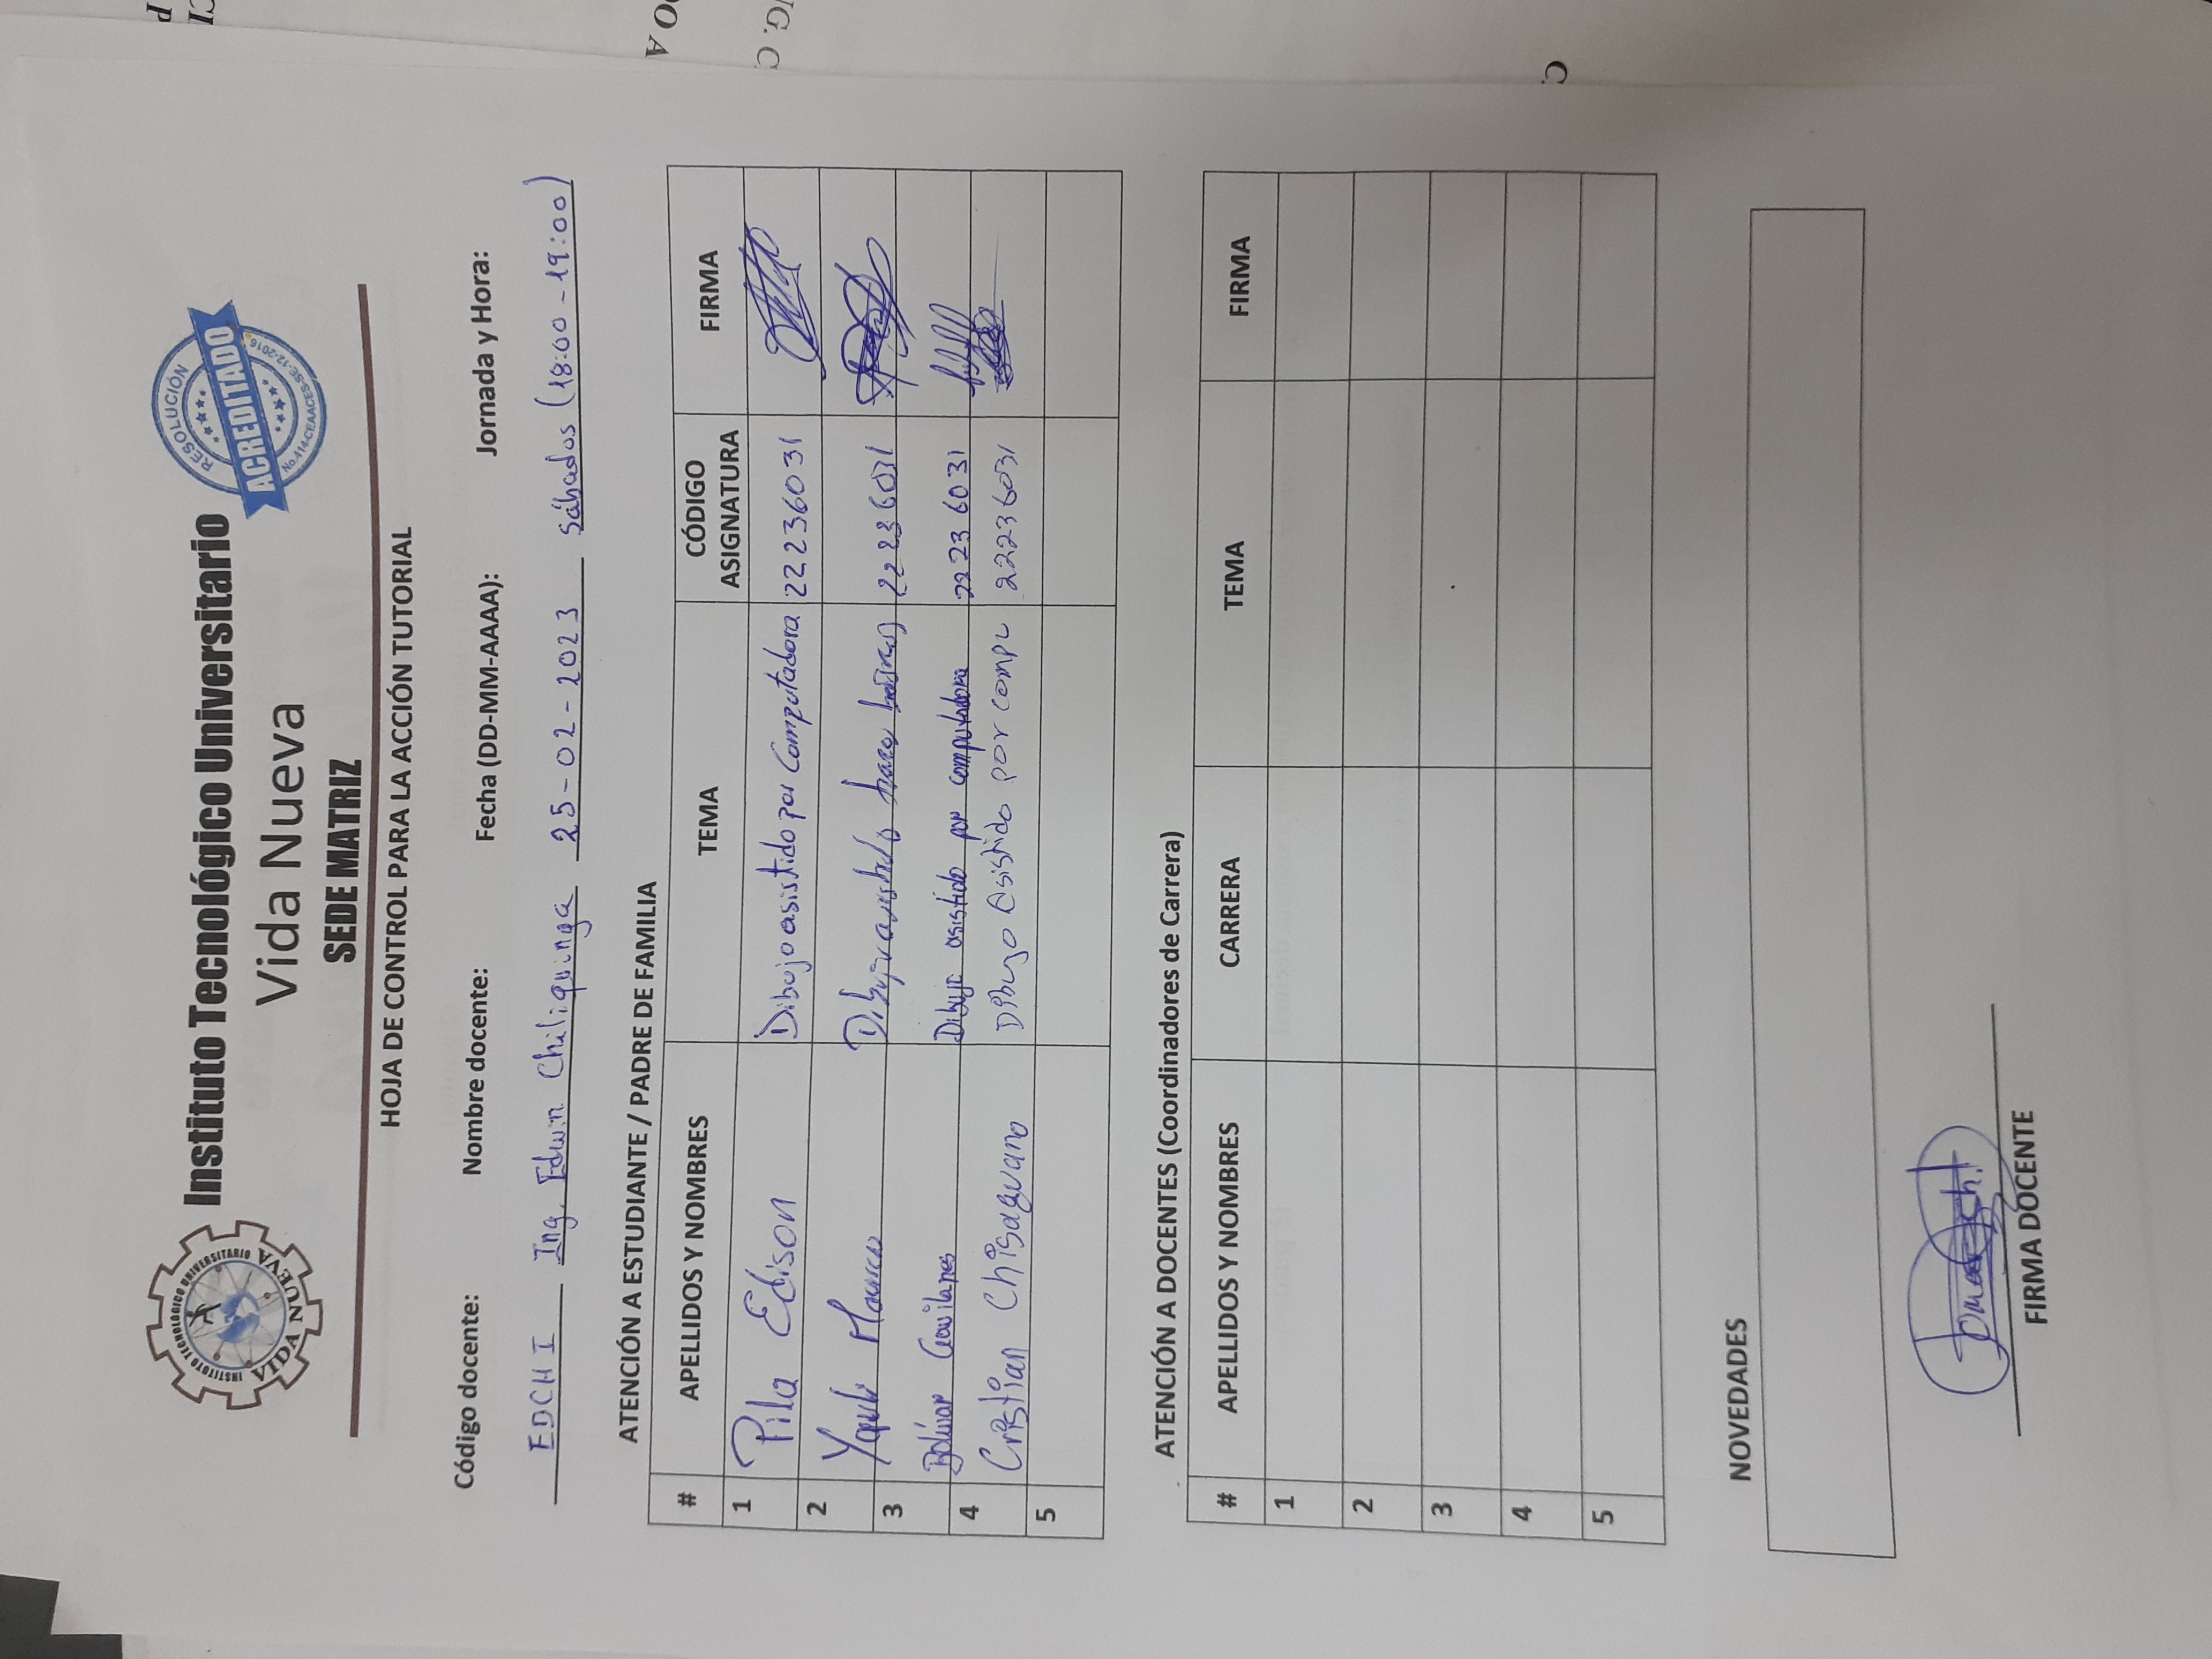 INSTITUTO TECNOLÓGICO UNIVERSITARIO
VIDA NUEVA
Instituto Tecnológico Universitario
Vida Nueva
SEDE MATRIZ
RESOLUCIÓN
ACREDITADO
No.414-CEAACES-SE-12-2016
HOJA DE CONTROL PARA LA ACCIÓN TUTORIAL
Código docente: Nombre docente: Fecha (DD-MM-AAAA): Jornada y Hora:
EDCHI Ing. Edwin Chiliquinga 25-02-2023 sábados (18:00-19:00)
ATENCIÓN A ESTUDIANTE / PADRE DE FAMILIA
# APELLIDOS Y NOMBRES TEMA CÓDIGO ASIGNATURA FIRMA
1 Pila Edison Dibujo asistido por Computadora 22236031
2 Dibujo asistido 22236031
3 Bolívar Gavilanes Dibujo asistido por computadora 22236031
4 Cristian Chisaguano Dibujo Asistido por compu 22236031
5
ATENCIÓN A DOCENTES (Coordinadores de Carrera)
# APELLIDOS Y NOMBRES CARRERA TEMA FIRMA
1
2
3
4
5
NOVEDADES
FIRMA DOCENTE